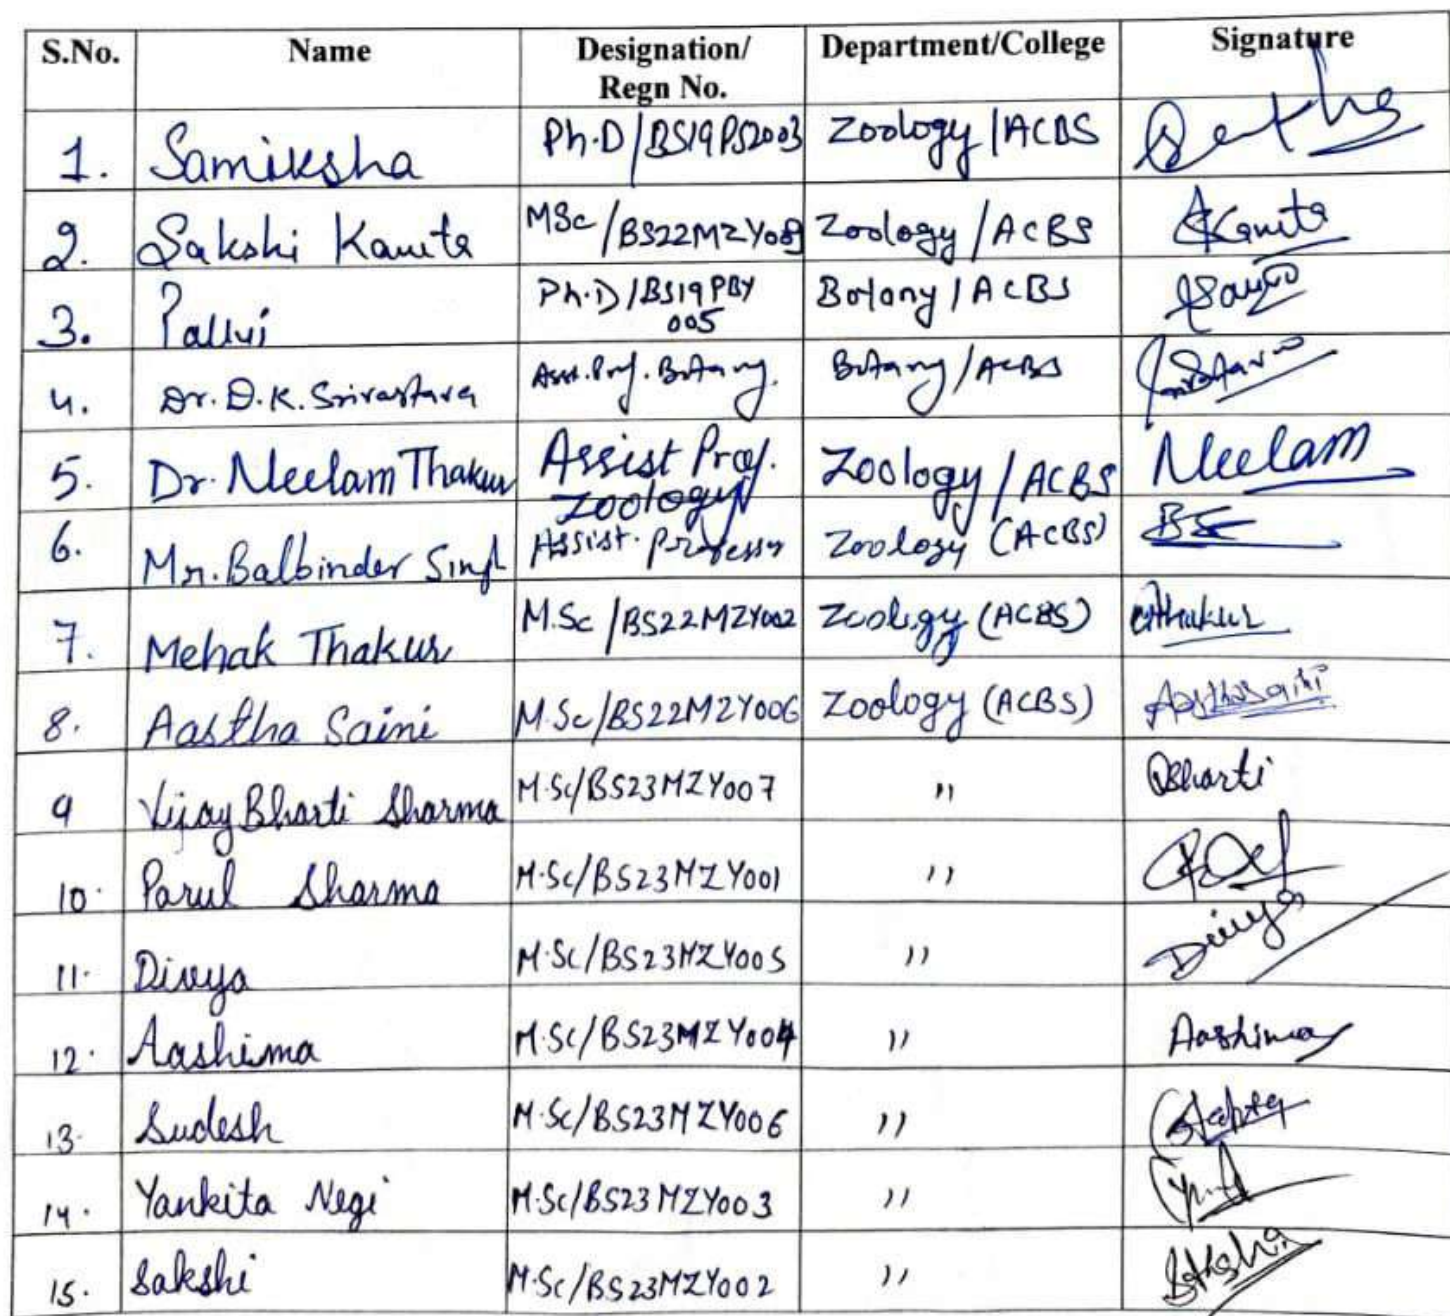 S.No. Name Designation/ Regn No. Department/College Signature
1. Samiksha Ph.D/BS19PS2003 Zoology/ACBS
2. Sakshi Kaute MSc/BS22MZY008 Zoology/ACBS
3. Pallvi Ph.D/BS19PBY005 Botany/ACBS
4. Dr. D.K. Srivastava Asst. Prof. Botany. Botany/ACBS
5. Dr. Neelam Thakur Assist Prof. Zoology Zoology/ACBS Neelam
6. Mr. Balbinder Singh Assist. Professor Zoology (ACBS) BS
7. Mehak Thakur M.Sc/BS22MZY002 Zoology (ACBS) Thakur
8. Aastha Saini M.Sc/BS22MZY006 Zoology (ACBS) Aasthasaini
9 Vijay Bharti Sharma M.Sc/BS23MZY007 " Bharti
10. Parul Sharma M.Sc/BS23MZY001 "
11. Divya M.Sc/BS23MZY005 " Divya
12. Aashima M.Sc/BS23MZY004 " Aashima
13. Sudesh M.Sc/BS23MZY006 "
14. Yankita Negi M.Sc/BS23MZY003 "
15. Sakshi M.Sc/BS23MZY002 " Sakshi